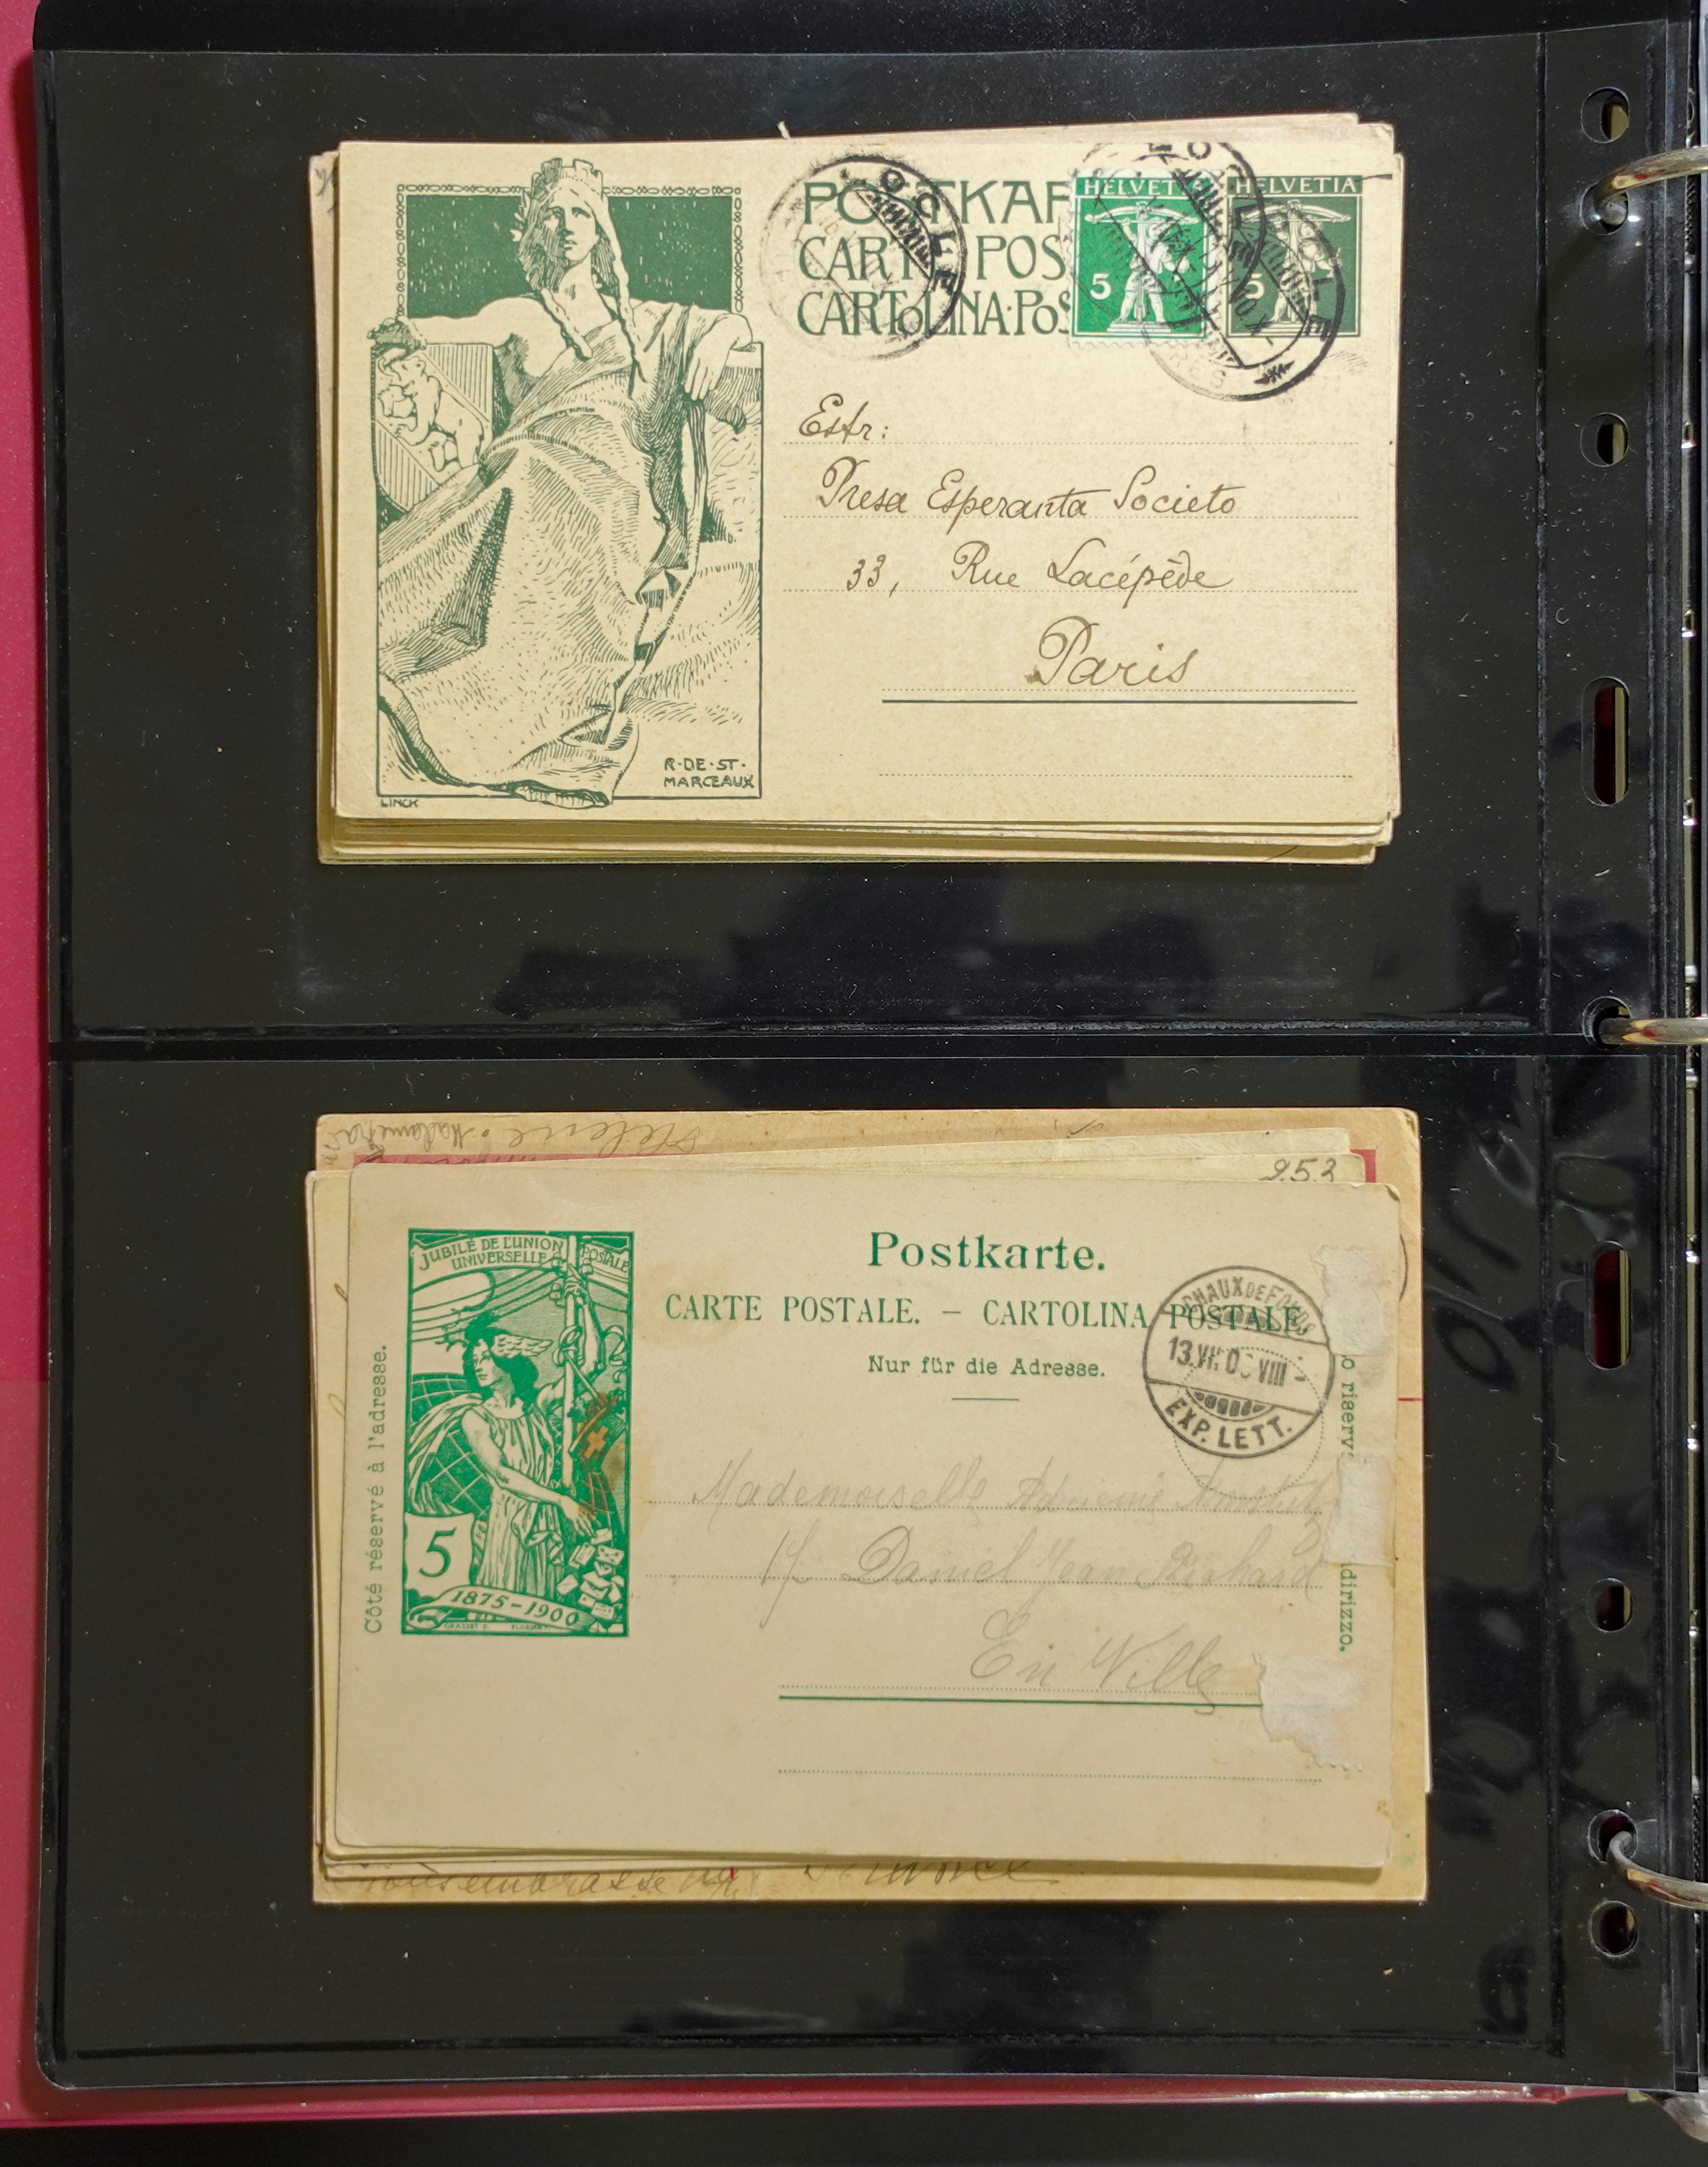 POSTKAR
CARTE POS
CARTOLINA·POS
HELVETIA
5
HELVETIA
5
LOCLE
LOCLE
LOCLE
Estr:
Presa Esperanta Societo
33, Rue Lacépède
Paris
R·DE·ST·
MARCEAUX
LINCK
Helene
253
JUBILÉ DE L'UNION POSTALE
UNIVERSELLE
5
1875-1900
GRASSET
Postkarte.
CARTE POSTALE. – CARTOLINA POSTALE
Nur für die Adresse.
CHAUX DE FONDS
VIII
EXP. LETT.
Côté réservé à l'adresse.
o riserv
dirizzo.
Mademoiselle
Daniel Jean Richard
En Ville